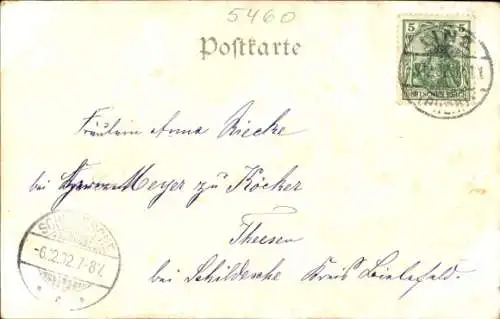 5460
Postkarte
5 5
LINZ
DEUTSCHES REICH
Fräulein Anna Riecke
bei Meyer zu Köcker
Theesen
bei Schildesche Kreis Bielefeld.
SCHILDESCHE
-6.12.02.7-8V.